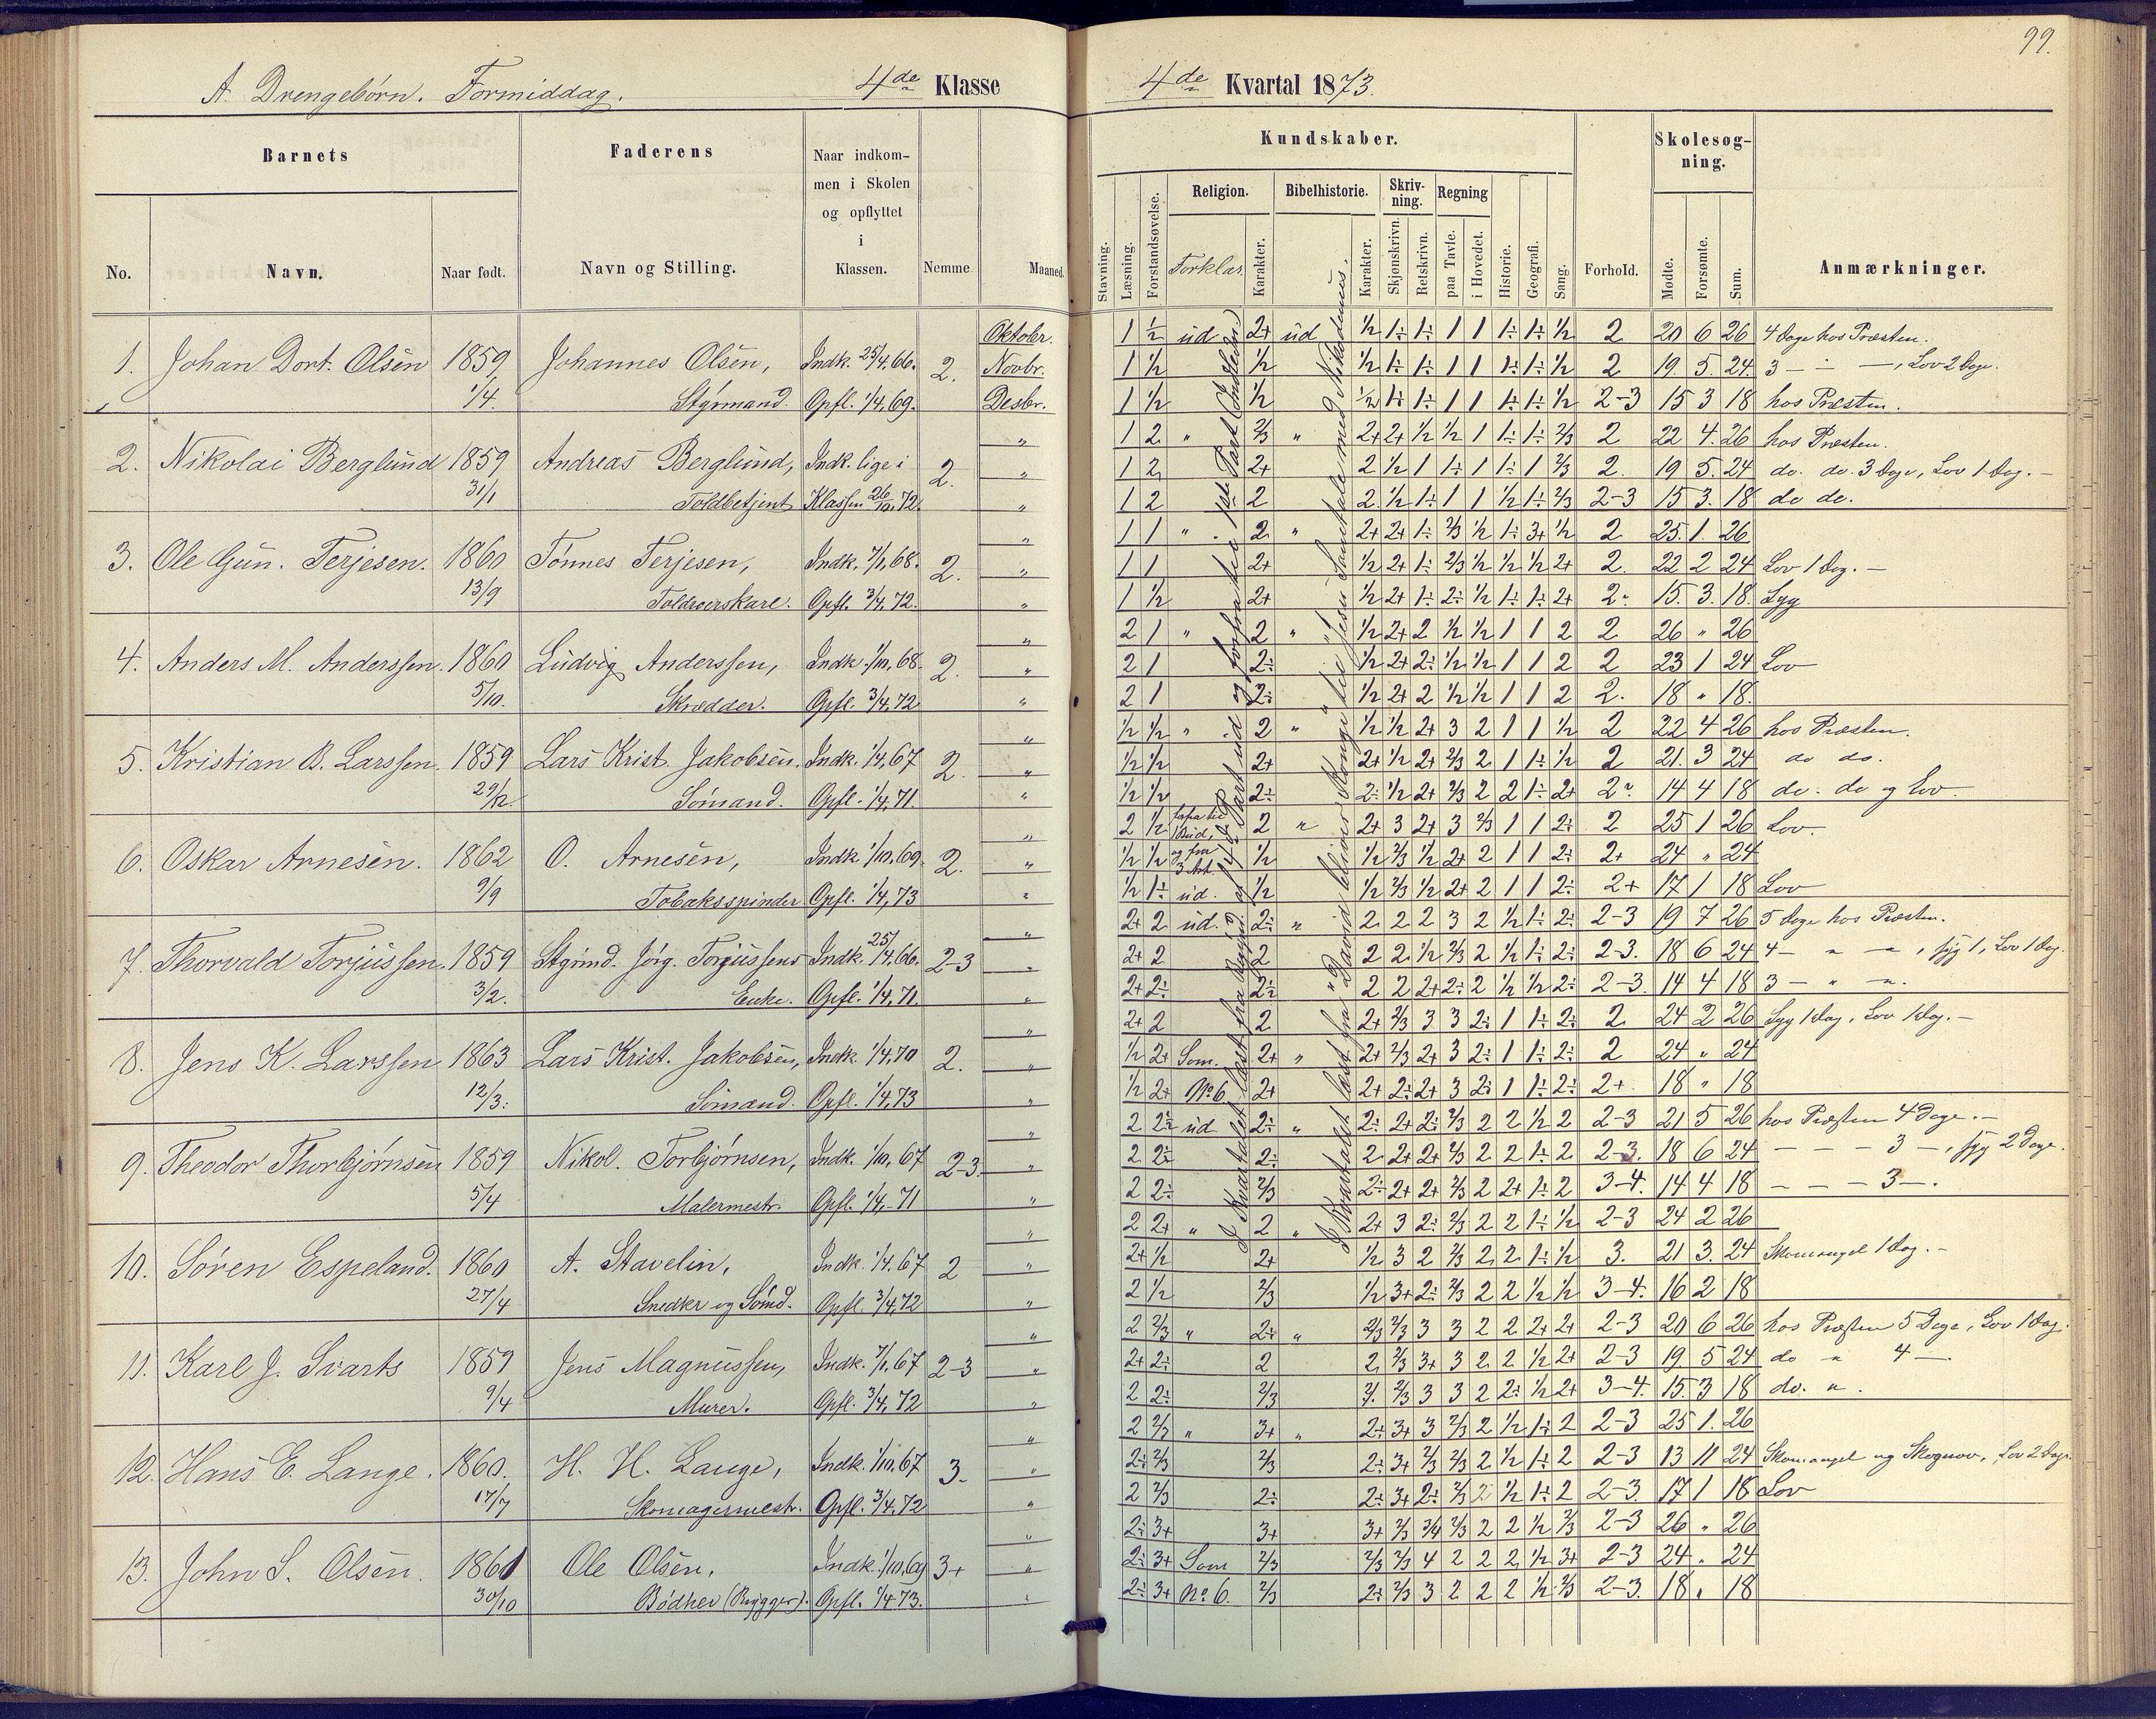 99.
A. Drengebørn. Formiddag. 4de Klasse
4de Kvartal 1873.
Barnets
Faderens
Naar indkom-
men i Skolen
og opflyttet
i
Klassen.
No.
Navn.
Naar født.
Navn og Stilling.
Nemme
Maaned.
Kundskaber.
Stavning.
Læsning.
Forstandsøvelse.
Religion.
Forklar.
Karakter.
Bibelhistorie.
Karakter.
Skriv-
ning.
Skjønskrivn.
Retskrivn.
Regning
paa Tavle.
i Hovedet.
Historie.
Geografi.
Sang.
Forhold.
Skolesøg-
ning.
Mødte.
Forsømte.
Sum.
Anmærkninger.
1. Johan Dort. Olsen 1859 Johannes Olsen, Indk. 25/4.66. 2. Oktober.
Novbr.
1/4. Styrmand. Opfl. 1/4.69. Desbr.
2. Nikolai Berglund 1859 Andreas Berglund, Indk. lige i 2.
31/1 Toldbetjent Klassen 26/10.72.
3. Ole Gun. Terjesen. 1860 Tønnes Terjesen, Indk. 7/1.68. 2.
13/9 Toldroerskarl. Opfl. 3/4.72.
4. Anders M. Anderssen. 1860 Ludvig Anderssen, Indk. 1/10.68. 2.
5/10. Skrædder. Opfl. 3/4.72
5. Kristian B. Larssen. 1859 Lars Krist. Jakobsen. Indk. 1/4.67 2.
29/12. Sømand. Opfl. 1/4.71.
6. Oskar Arnesen. 1862 O. Arnesen, Indk. 1/10.69. 2.
9/9 Tobaksspinder Opfl. 1/4.73
7. Thorvald Torjussen. 1859 Styrmd. Jørg. Torjussens Indk. 25/4.66. 2-3
3/2. Enke. Opfl. 1/4.71.
8. Jens K. Larssen 1863 Lars Krist. Jakobsen, Indk. 1/4.70 2.
12/3. Sømand. Opfl. 1/4.73
9. Theodor Thorbjørnsen 1859 Nikol. Torbjørnsen, Indk. 1/10.67 2-3.
5/4 Malermestr. Opfl. 1/4.71
10. Søren Espeland. 1860 A. Stavelin, Indk. 1/4.67 2
27/4 Snedker og Sømd. Opfl. 3/4.72
11. Karl J. Svarts 1859 Jens Magnussen, Indk. 7/1.67 2-3
9/4 Murer. Opfl. 3/4.72
12. Hans E. Lange. 1860. H. H. Lange, Indk. 1/10.67 3.
17/7 Skomagermestr. Opfl. 3/4.72
13. John S. Olsen. 1861 Ole Olsen, Indk. 1/10.69 3+
30/10 Bødker (Brygger). Opfl. 1/4.73.
1 1/2 ud 2+ ud 1/2 1÷ 1÷ 1 1 1÷ 1÷ 1/2 2 20 6 26 4 Dage hos Præsten.
1 1/2 1/2 1/2 1÷ 1÷ 1 1 1÷ 1÷ 1/2 2 19 5. 24. 3 – – –, Lov 2 Dage.
1 1/2 1/2 1/2 1÷ 1÷ 1 1 1÷ 1÷ 1/2 2-3 15 3 18 hos Præsten.
1 2 " 2/3 " 2+ 2+ 1/2 1/2 1 1÷ 1÷ 2/3 2 22 4. 26 hos Præsten.
1 2 2+ 2 1/2 1 1÷ 1 1÷ 1 2/3 2. 19 5. 24 do. do. 3 Dage, Lov 1 Dag.
1 2 2 2 1/2 1÷ 1 1 1/2 1÷ 2/3 2-3 15 3. 18 do do.
1 1 " 2 " 2+ 2+ 1÷ 2/3 1/2 1÷ 3+ 1/2 2 25. 1. 26
1 1 2+ 1/2 2+ 1÷ 2/3 1/2 1/2 1/2 2+ 2. 22 2 24 Lov 1 Dag.
1 1/2 2+ 1/2 2+ 1÷ 2÷ 1/2 1÷ 1÷ 2+ 2. 15. 3. 18. Syg
2 1 " 2 " 1/2 2+ 2 1/2 1/2 1 1 2 2 26 " 26
2 1 2÷ 1/2 2+ 2÷ 1/2 1/2 1 1 2 2 23 1 24 Lov
2 1 2÷ 1/2 2+ 2 1/2 1/2 1 1 2 2. 18 " 18.
1/2 1/2 " 2 " 1/2 1/2 2+ 3 2 1 1 1/2 2 22 4 26 hos Præsten.
1/2 1/2 2+ 2+ 1/2 2+ 2/3 2 1 1÷ 1/2 2 21. 3 24 do do.
1/2 1/2 2÷ 2÷ 1/2 2+ 2/3 2 2 1÷ 2+ 2. 14 4 18 do. do og Lov
2 1/2 2 " 2+ 3 2+ 3 2/3 1 1 2÷ 2 25 1 26 Lov.
1/2 1/2 og fra 3 Art. 1/2 1/2 2/3 1/2 2+ 2 1 1 2÷ 2+ 24 " 24
1/2 1÷ ud. 1/2 1/2 2/3 1/2 2+ 2 1 1 2÷ 2+ 17 1 18 Lov
2+ 2 ud. 2÷ " 2 2 2 3 2 1/2 1÷ 2÷ 2-3 19 7 26 5 Dage hos Præsten.
2+ 2 2 2 2 1/2 2/3 2 1/2 1÷ 2÷ 2-3. 18 6 24 4 – " –, syg 1, Lov 1 Dag.
2+ 2÷ 2÷ 2 2 2+ 2÷ 2 1/2 1/2 2÷ 2-3. 14 4 18 3 – " –.
2+ 2 2 2+ 2/3 3 3 2÷ 1 1÷ 2÷ 2 24 2 26 Syg 1 Dag, Lov 1 Dag.
1/2 2+ Som. 2+ " 2+ 2/3 2+ 3 2÷ 1 1÷ 2÷ 2 24 " 24
1/2 2+ No 6 2+ 2+ 2÷ 2+ 3 2÷ 1 1÷ 2÷ 2+ 18 " 18
2 2÷ ud 2÷ " 2÷ 2+ 2÷ 2/3 2 2 1/2 2 2-3 21 5 26 hos Præsten 4 Dage.
2 2÷ 2÷ 2 2+ 2+ 2/3 2 2 1÷ 2 2-3. 18 6 24 – – – 3 –, syg 2 Dage.
2 2÷ 2/3 2÷ 2+ 2+ 2/3 2 2+ 1÷ 2 3-4. 14 4 18 – – – 3 –.
2 2+ " 2 " 2+ 3 2÷ 2/3 2 2 1÷ 1/2 2-3 24 2 26
2+ 1/2 2+ 1/2 3 2 2/3 2 2 1÷ 1/2 3. 21 3. 24 Skomangel 1 Dag.
2 1/2 2/3 1/2 3+ 2÷ 2/3 2 2 1/2 1/2 3-4. 16 2 18
2 2/3 " 2÷ " 2/3 2/3 3 3 2 2 2+ 2+ 2-3 20 6 26 hos Præsten 5 Dage, Lov 1 Dag.
2+ 2÷ 2 2 2/3 3+ 3 2 2 1/2 2+ 2-3 19 5 24 do " 4 –.
2 2÷ 2/3 2. 2/3 3 3 2 2÷ 1/2 2+ 3-4. 15. 3 18 do. ".
2 2/3 " 3+ " 2+ 3+ 3 2/3 2 1/2 1÷ 2 2-3 25 1. 26
2÷ 2/3 2/3 2÷ 3+ 2/3 2/3 2 1/2 1÷ 2 2-3 13 11 24 Skomangel og Skognov, Lov 2 Dage.
2 2/3 2÷ 2÷ 3+ 2÷ 2/3 2 1/2 1÷ 2 2-3. 17 1 18 Lov
2÷ 3+ 3+ 3+ 2/3 3/4 2/3 2 2 1/2 2/3 2-3 26 " 26
2÷ 3+ Som 2/3 2/3 2/3 4 2 2 2 1/2 3+ 2-3 24 " 24
2÷ 3+ No. 6. 2/3 2÷ 2/3 3 2 2 2 1/2 2/3 2-3. 18 " 18